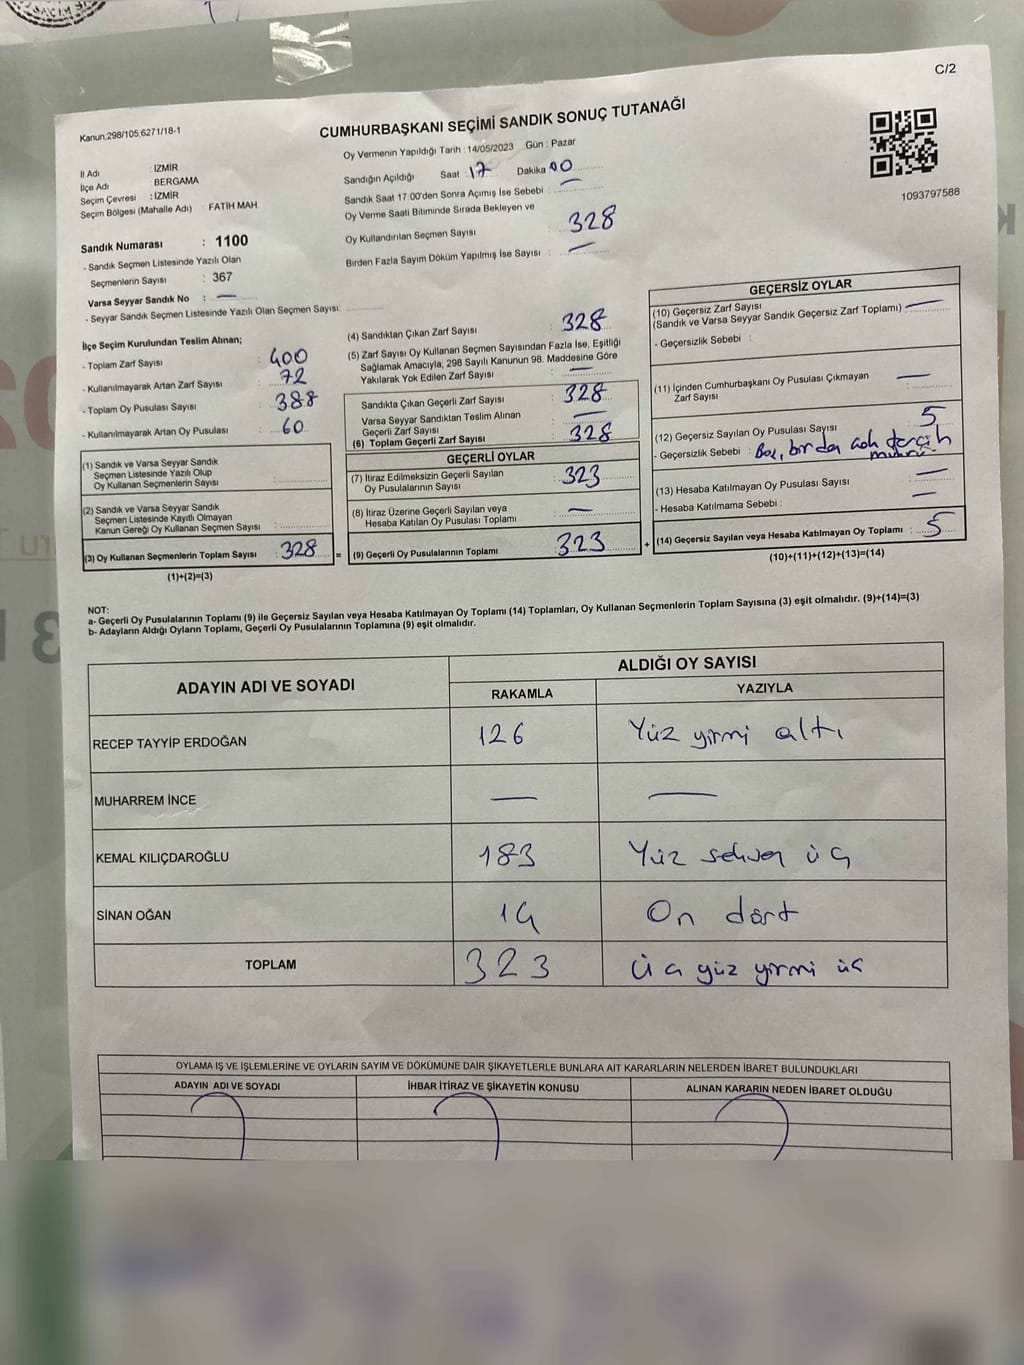 C/2
Kanun,298/105;6271/18-1
CUMHURBAŞKANI SEÇİMİ SANDIK SONUÇ TUTANAĞI
Oy Vermenin Yapıldığı Tarih : 14/05/2023 Gün : Pazar
İl Adı : İZMİR
İlçe Adı BERGAMA
Seçim Çevresi : İZMİR
Seçim Bölgesi (Mahalle Adı) : FATİH MAH.
Sandığın Açıldığı Saat : 17 Dakika 00
Sandık Saat 17:00'den Sonra Açımış İse Sebebi : —
Oy Verme Saati Bitiminde Sırada Bekleyen ve
Oy Kullandırılan Seçmen Sayısı : 328
Birden Fazla Sayım Döküm Yapılmış İse Sayısı : —
1093797588
Sandık Numarası : 1100
- Sandık Seçmen Listesinde Yazılı Olan
Seçmenlerin Sayısı : 367
Varsa Seyyar Sandık No : —
- Seyyar Sandık Seçmen Listesinde Yazılı Olan Seçmen Sayısı:
İlçe Seçim Kurulundan Teslim Alınan;
- Toplam Zarf Sayısı : 400
- Kullanılmayarak Artan Zarf Sayısı : 72
- Toplam Oy Pusulası Sayısı : 388
- Kullanılmayarak Artan Oy Pusulası : 60
(1) Sandık ve Varsa Seyyar Sandık
Seçmen Listesinde Yazılı Olup
Oy Kullanan Seçmenlerin Sayısı :
(2) Sandık ve Varsa Seyyar Sandık
Seçmen Listesinde Kayıtlı Olmayan
Kanun Gereği Oy Kullanan Seçmen Sayısı :
(3) Oy Kullanan Seçmenlerin Toplam Sayısı : 328 =
(1)+(2)=(3)
(4) Sandıktan Çıkan Zarf Sayısı : 328
(5) Zarf Sayısı Oy Kullanan Seçmen Sayısından Fazla İse, Eşitliği
Sağlamak Amacıyla, 298 Sayılı Kanunun 98. Maddesine Göre
Yakılarak Yok Edilen Zarf Sayısı : —
Sandıkta Çıkan Geçerli Zarf Sayısı : 328
Varsa Seyyar Sandıktan Teslim Alınan
Geçerli Zarf Sayısı : —
(6) Toplam Geçerli Zarf Sayısı : 328
GEÇERLİ OYLAR
(7) İtiraz Edilmeksizin Geçerli Sayılan
Oy Pusulalarının Sayısı : 323
(8) İtiraz Üzerine Geçerli Sayılan veya
Hesaba Katılan Oy Pusulası Toplamı : —
(9) Geçerli Oy Pusulalarının Toplamı : 323 +
GEÇERSİZ OYLAR
(10) Geçersiz Zarf Sayısı
(Sandık ve Varsa Seyyar Sandık Geçersiz Zarf Toplamı) : —
- Geçersizlik Sebebi :
(11) İçinden Cumhurbaşkanı Oy Pusulası Çıkmayan
Zarf Sayısı : —
(12) Geçersiz Sayılan Oy Pusulası Sayısı : 5
- Geçersizlik Sebebi : Boş, birden çok tercih
(13) Hesaba Katılmayan Oy Pusulası Sayısı : —
- Hesaba Katılmama Sebebi : —
(14) Geçersiz Sayılan veya Hesaba Katılmayan Oy Toplamı : 5
(10)+(11)+(12)+(13)=(14)
NOT:
a- Geçerli Oy Pusulalarının Toplamı (9) ile Geçersiz Sayılan veya Hesaba Katılmayan Oy Toplamı (14) Toplamları, Oy Kullanan Seçmenlerin Toplam Sayısına (3) eşit olmalıdır. (9)+(14)=(3)
b- Adayların Aldığı Oyların Toplamı, Geçerli Oy Pusulalarının Toplamına (9) eşit olmalıdır.
ADAYIN ADI VE SOYADI ALDIĞI OY SAYISI
RAKAMLA YAZIYLA
RECEP TAYYİP ERDOĞAN 126 Yüz yirmi altı
MUHARREM İNCE — —
KEMAL KILIÇDAROĞLU 183 Yüz seksen üç
SİNAN OĞAN 14 On dört
TOPLAM 323 Üç yüz yirmi üç
OYLAMA İŞ VE İŞLEMLERİNE VE OYLARIN SAYIM VE DÖKÜMÜNE DAİR ŞİKAYETLERLE BUNLARA AİT KARARLARIN NELERDEN İBARET BULUNDUKLARI
ADAYIN ADI VE SOYADI İHBAR İTİRAZ VE ŞİKAYETİN KONUSU ALINAN KARARIN NEDEN İBARET OLDUĞU